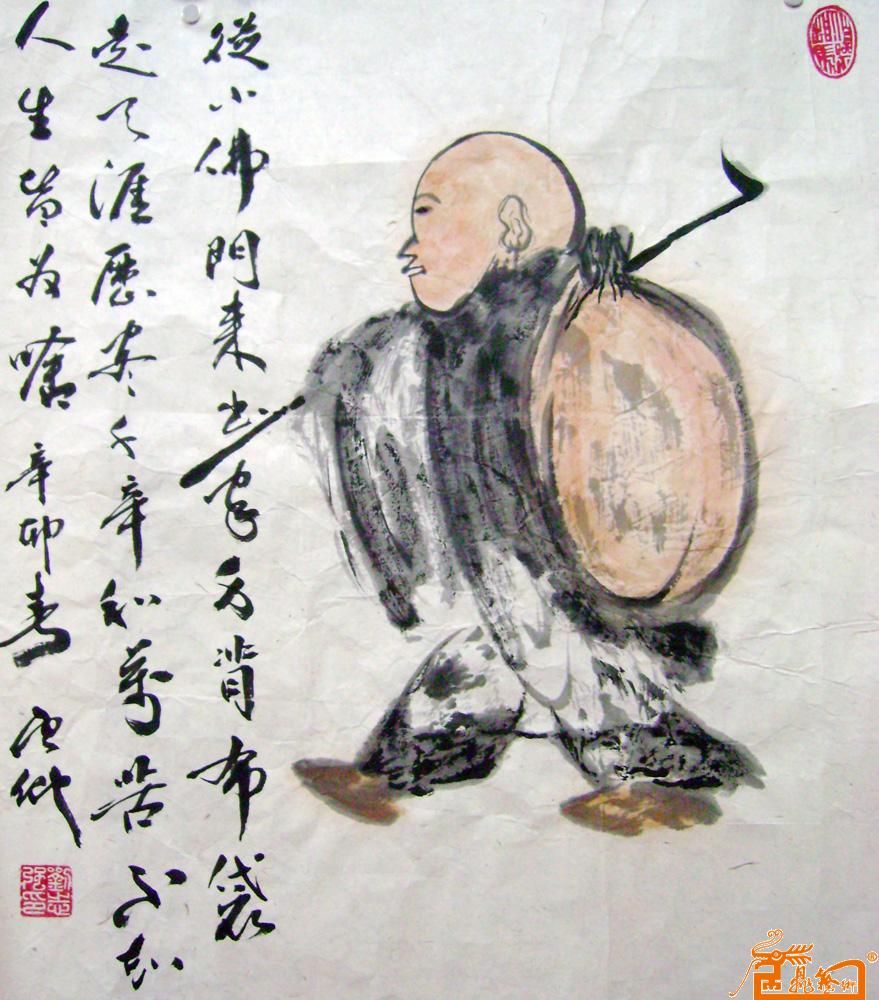 從小佛門來出家身背布袋
走天涯歷盡千辛和萬苦不知
人生皆为啥 辛卯春